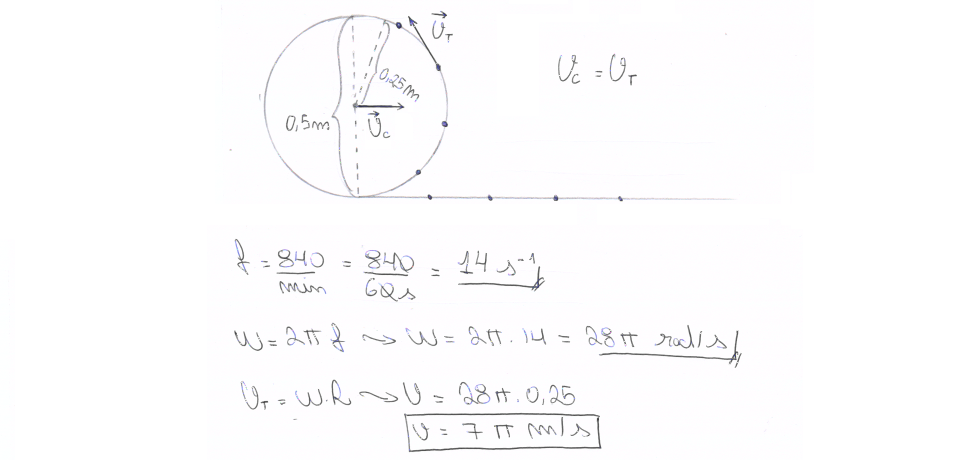 V⃗_T
V_C = V_T
0,25m
0,5m
V⃗_C
f = 840/min = 840/60s = 14 s⁻¹
W = 2πf ⇝ W = 2π.14 = 28π rad/s
V_T = W.R ⇝ V = 28π.0,25
V = 7π m/s